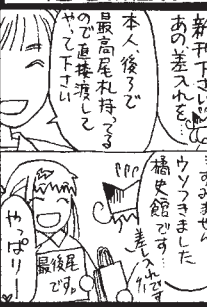 新刊下さい
あの差入れを…
本人、後ろで
最高尾札持ってる
ので直接渡して
やって下さい
すみません
ウソつきました
橘史館です…
差し入れです
最後尾
です。
やっぱりー